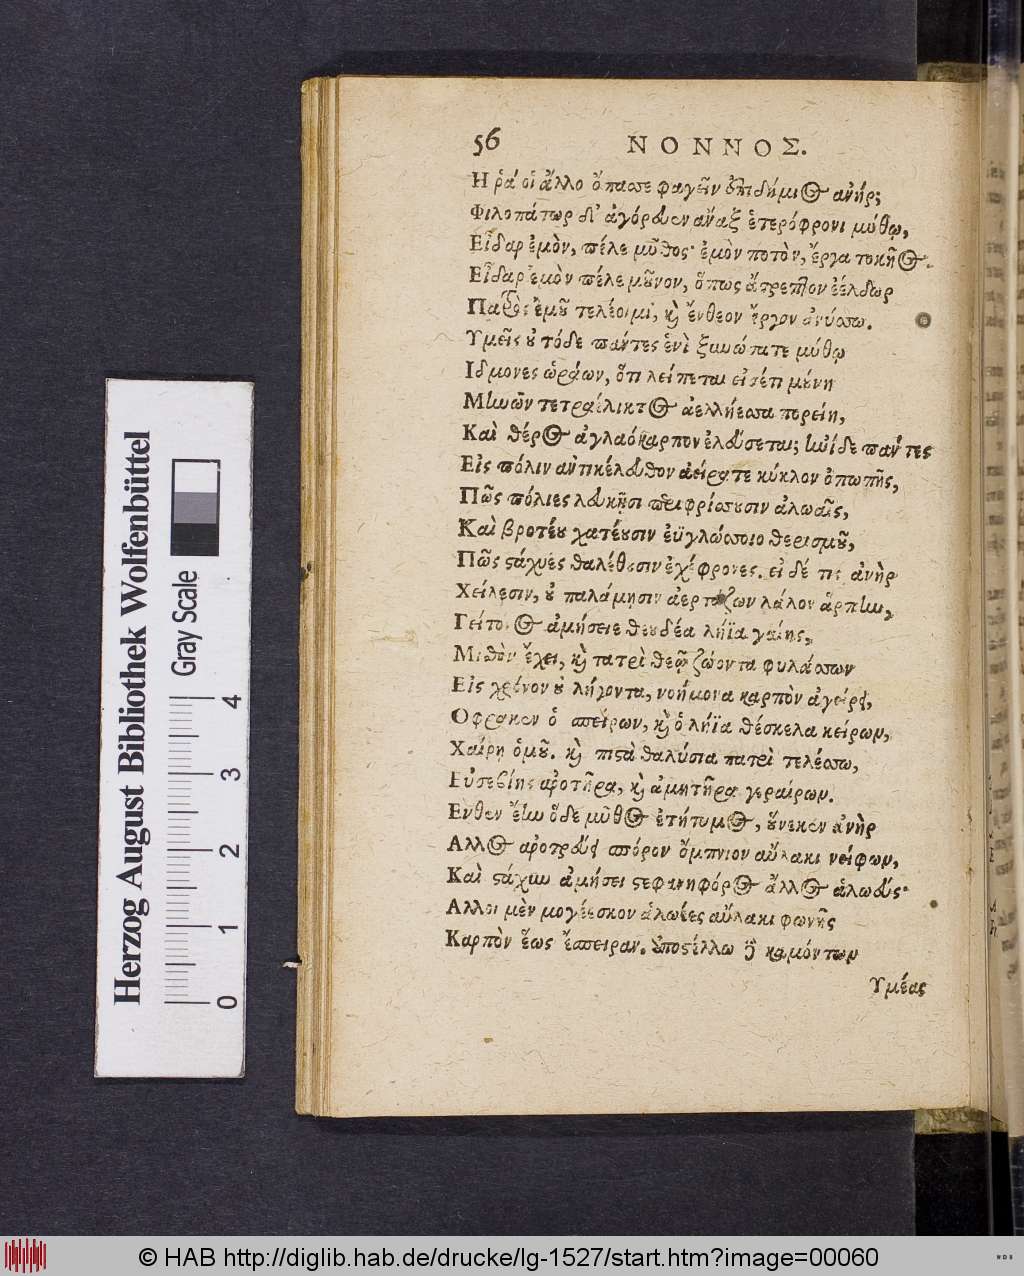 56 ΝΟΝΝΟΣ.
Η ῥά οἱ ἄλλο ὄπασσε φαγεῖν ἐπιδήμιος ἀνήρ;
Φιλοπάτωρ δ' ἀγόρευεν ἄναξ ἑτερόφρονι μύθῳ,
Εἶδαρ ἐμὸν, πέλε μῦθος· ἐμὸν ποτὸν, ἔργα τοκῆος.
Εἶδαρ ἐμὸν πέλε μοῦνον, ὅπως ἄτρεπτον ἐέλδωρ
Πατρὸς ἐμοῦ τελέοιμι, καὶ ἔνθεον ἔργον ἀνύσσω.
Υμεῖς οὐ τόδε πάντες ἑνὶ ξυνώσατε μύθῳ
Ιδμονες ὡράων, ὅτι λείπεται εἰσέτι μούνη
Μηνῶν τετραέλικτος ἀελλήεσσα πορείη,
Καὶ θέρος ἀγλαόκαρπον ἐλεύσεται; ἠνίδε πάντες
Εἰς πόλιν ἀντικέλευθον ἀείρατε κύκλον ὀπωπῆς,
Πῶς πόλιες λευκῇσι περιφρίσσουσιν ἀλωαῖς,
Καὶ βροτέου χατέουσιν ἐϋγλώσσοιο θερισμοῦ,
Πῶς στάχυες θαλέθουσιν ἐχέφρονες. εἰ δέ τις ἀνὴρ
Χείλεσιν, οὐ παλάμησιν ἀερτάζων λάλον ἅρπην,
Γείτονος ἀμήσειε θεουδέα λήϊα γαίης,
Μισθὸν ἔχει, καὶ πατρὶ θεῷ ζώοντα φυλάσσων
Εἰς χρόνον οὐ λήγοντα, νοήμονα καρπὸν ἀγείρει,
Οφρα κεν ὁ σπείρων, καὶ ὁ λήϊα θέσκελα κείρων,
Χαίρῃ ὁμοῦ. καὶ πιστὰ θαλύσια πατρὶ τελέσσω,
Εὐσεβίης ἀροτῆρα, καὶ ἀμητῆρα γεραίρων.
Ενθεν ἔην ὅδε μῦθος ἐτήτυμος, οὕνεκεν ἀνὴρ
Αλλος ἀροτρεύει σπόρον ὄμπνιον αὔλακι νείφων,
Καὶ στάχυν ἀμήσει στεφανηφόρος ἄλλος ἁλωεύς·
Αλλοι μὲν μογέεσκον ἁλωέες αὔλακι φωνῆς
Καρπὸν ἕως ἔσπειραν. ἀποστέλλω δὲ καμόντων
Υμέας
Herzog August Bibliothek Wolfenbüttel
Gray Scale
0 1 2 3 4
© HAB http://diglib.hab.de/drucke/lg-1527/start.htm?image=00060